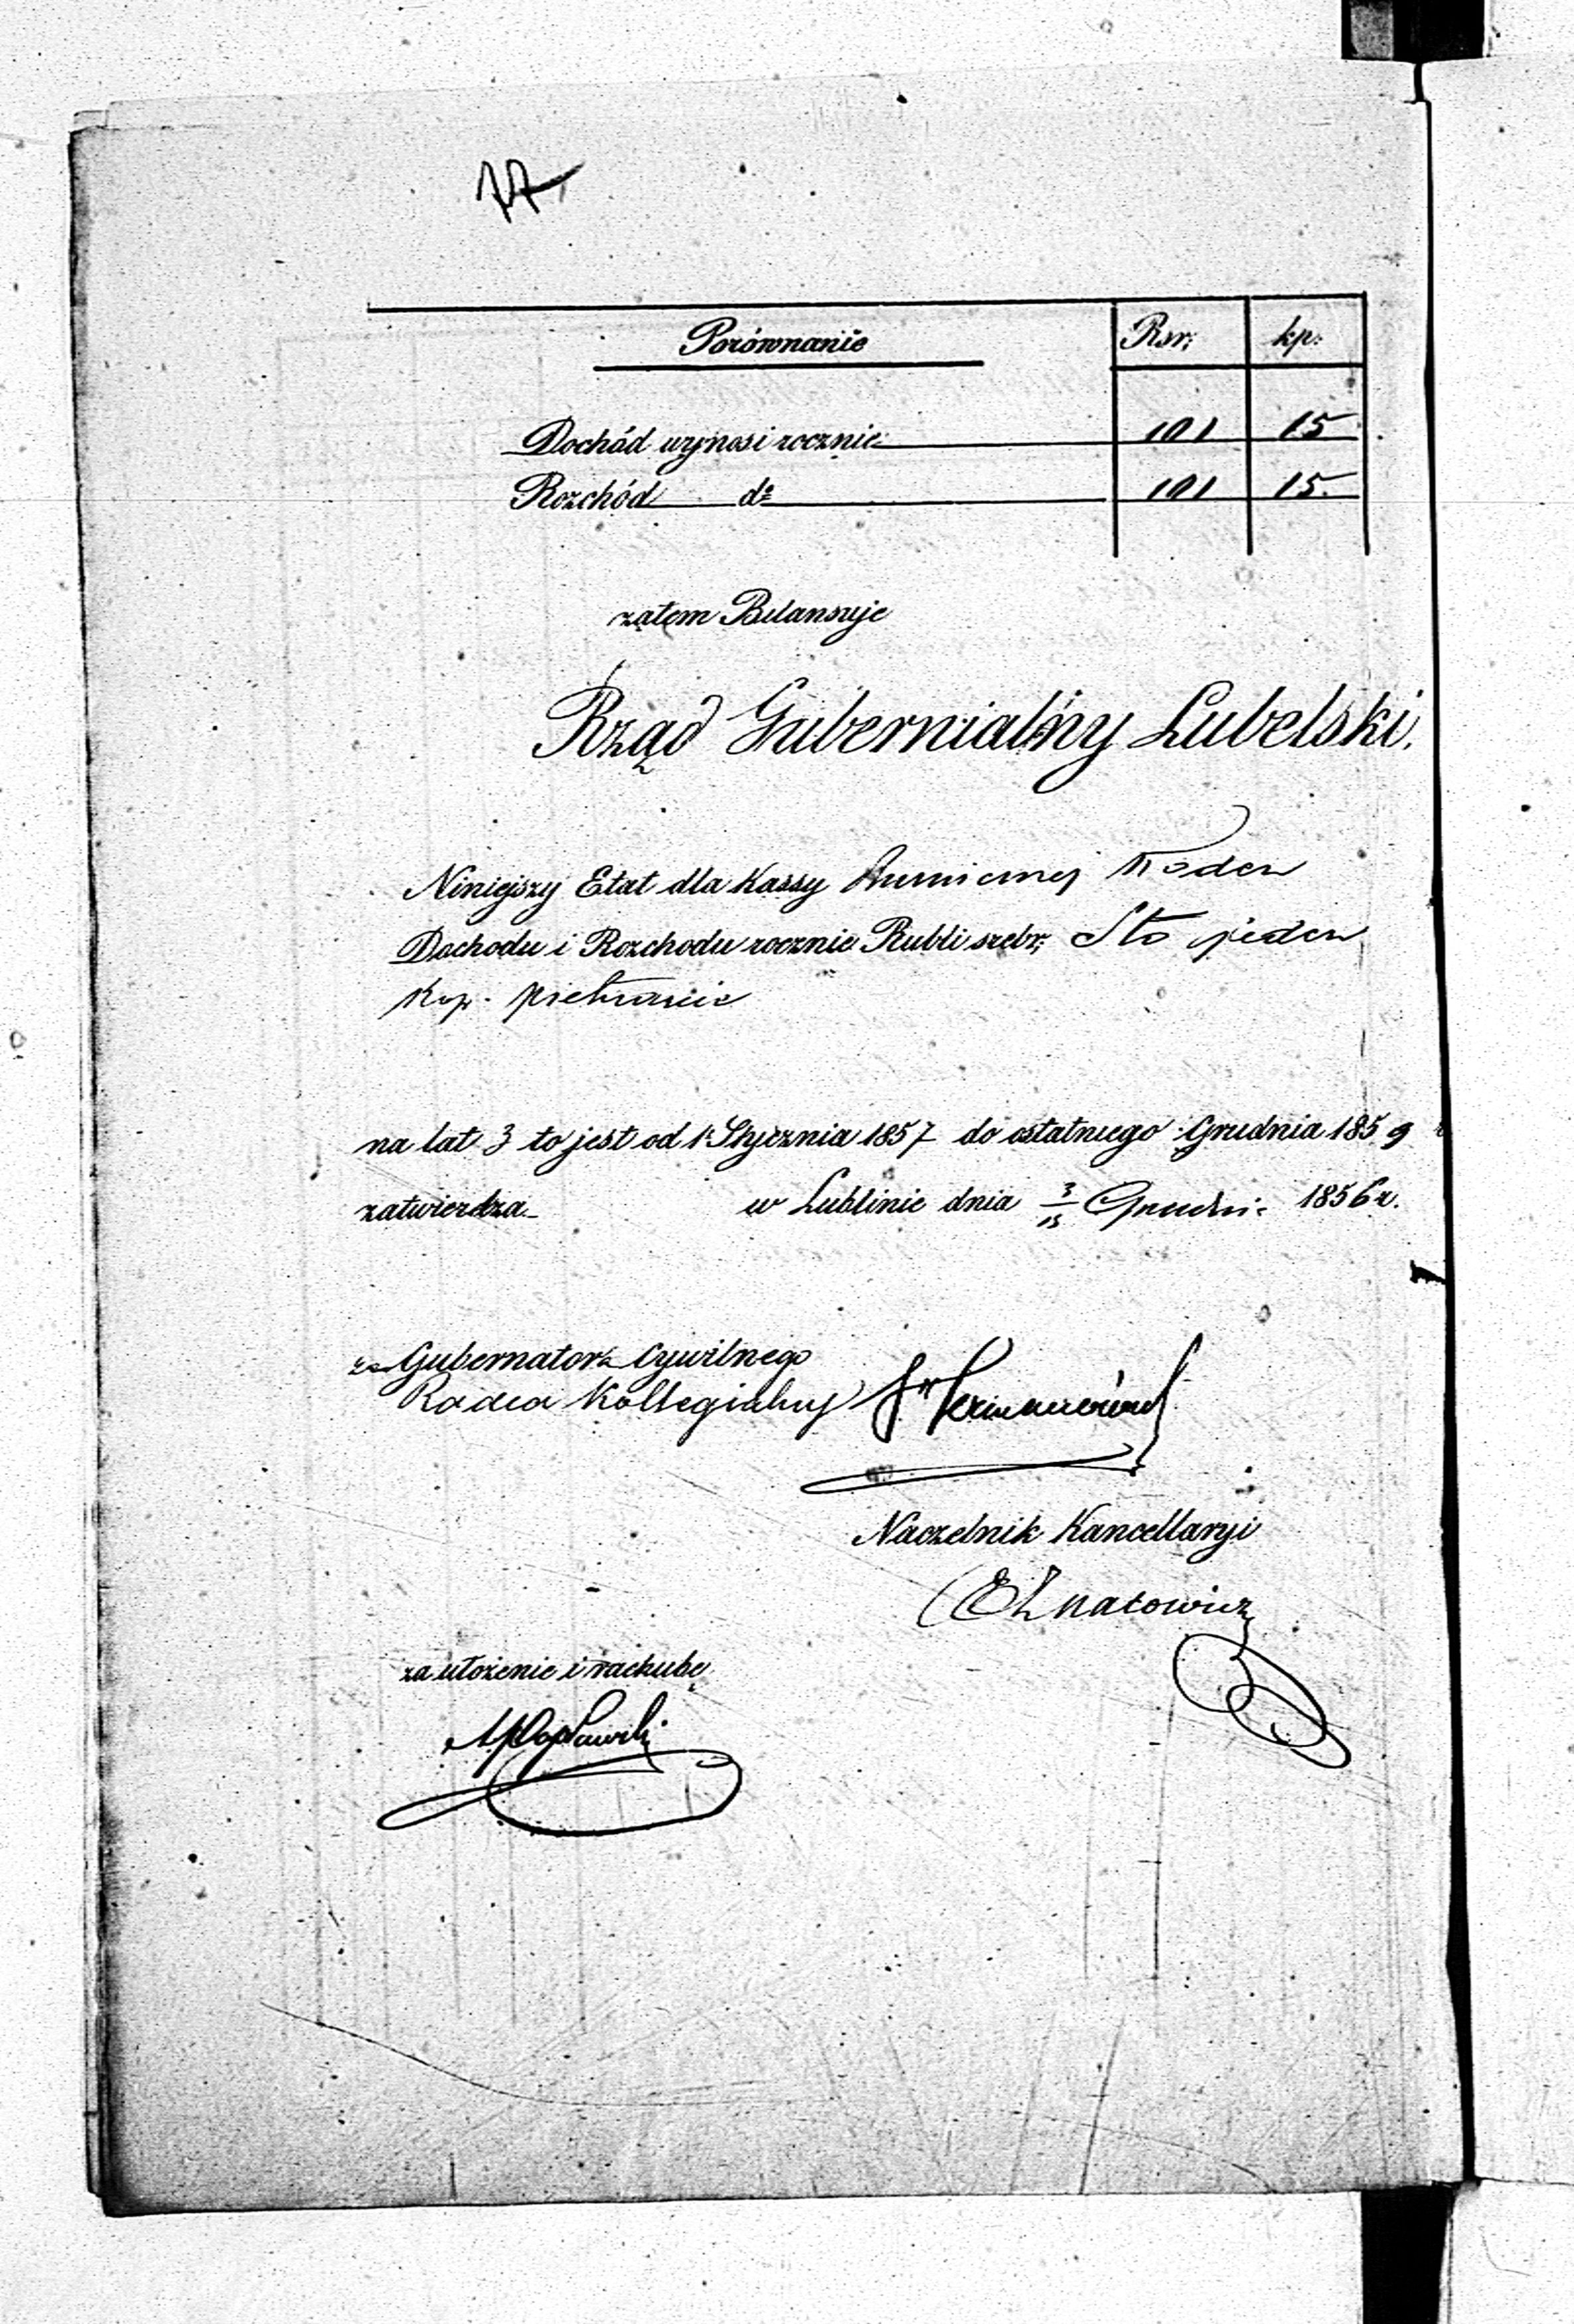 77
Porównanie Rsr. kp.
Dochód wynosi rocznie 101 15
Rozchód do 101 15.
zatem Bilansuje
Rząd Gubernialny Lubelski.
Niniejszy Etat dla Kassy Kodeń
Dochodu i Rozchodu rocznie Rubli srebr: Sto jeden
kop. piętnaście
na lat 3 to jest od 1 Stycznia 1857 do ostatniego Grudnia 1859
zatwierdza w Lublinie dnia 3/15 Grudnia 1856 r.
za Gubernatora Cywilnego
Radca Kollegialny
Naczelnik Kancellaryi
za ułożenie i rachubę